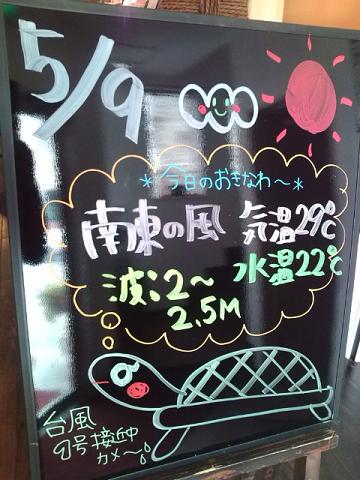 5/9
*今日のおきなわ〜*
南東の風 気温29℃
波:2〜 水温22℃
2.5M
台風
9号接近中
カメ〜